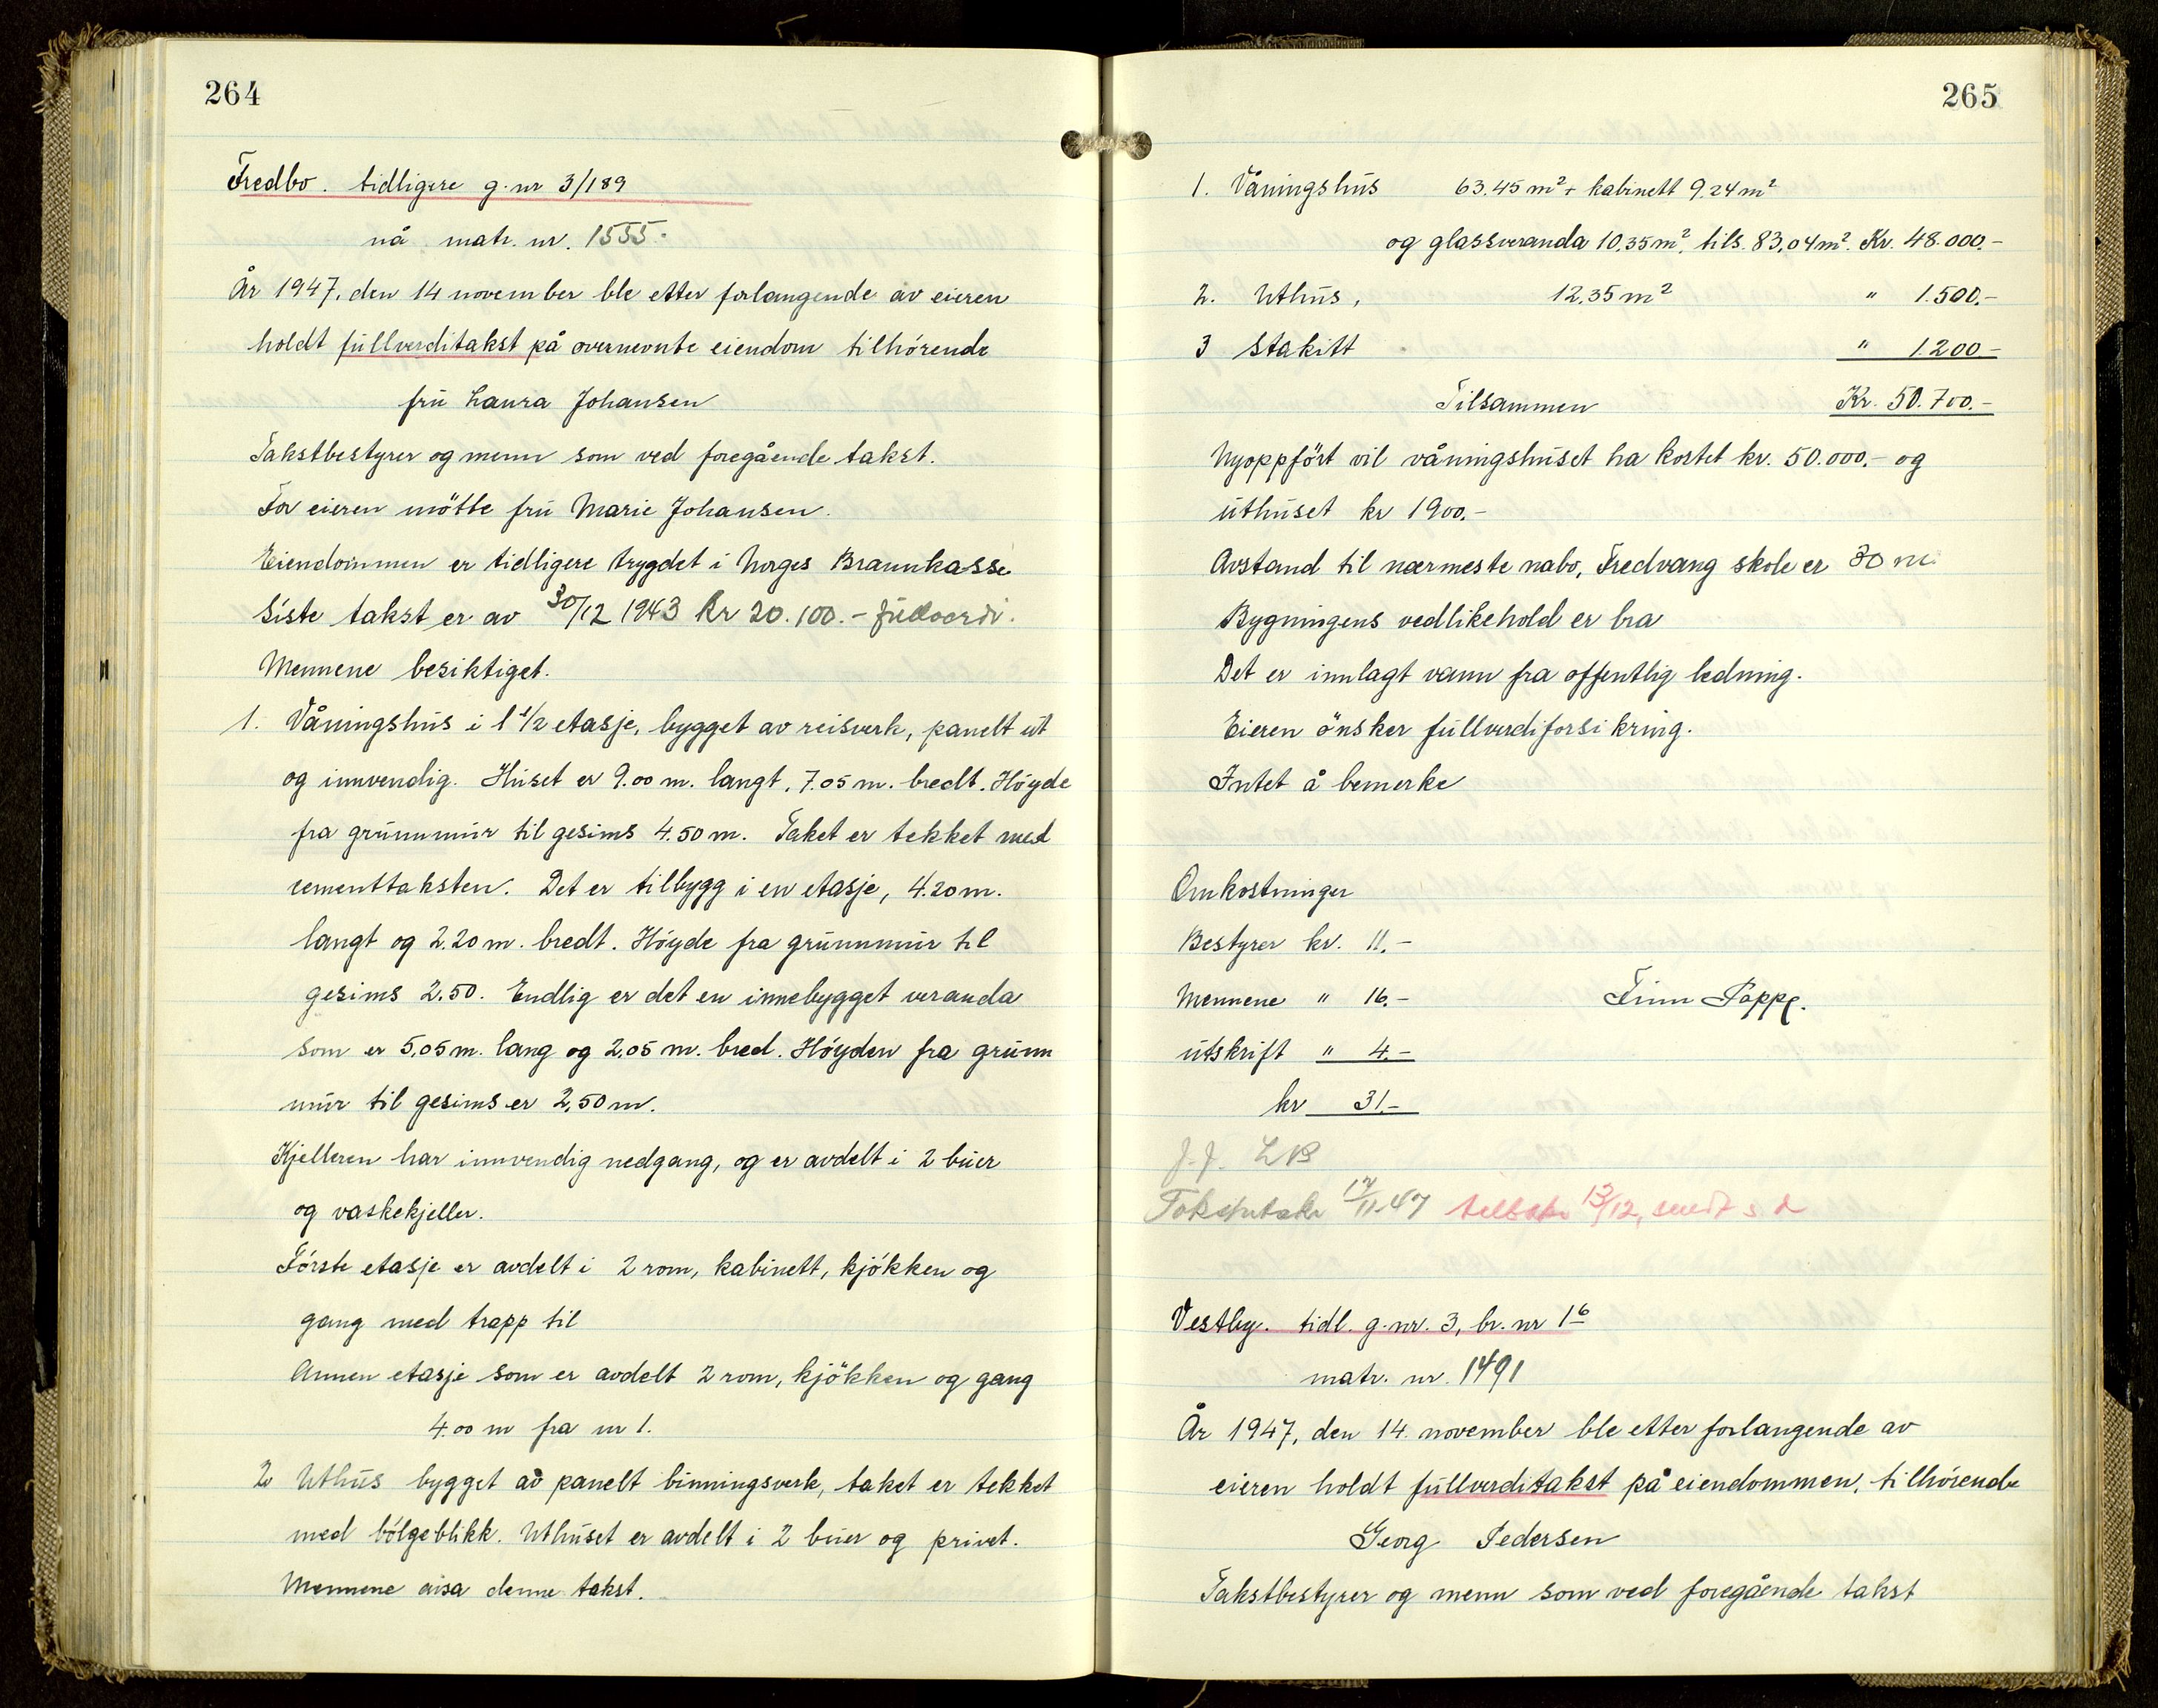 264
Fredbo. tidligere g.nr 3/189
nå matr. nr. 1555.
År 1947, den 14 november ble etter forlangende av eieren
holdt fullverditakst på overnevnte eiendom tilhørende
fru Laura Johansen
Takstbestyrer og menn som ved foregående takst.
For eieren møtte fru Marie Johansen.
Eiendommen er tidligere trygdet i Norges Brannkasse
Siste takst er av 30/12 1943 kr 20.100.- fullverdi.
Mennene besiktiget.
1. Våningshus i 1 1/2 etasje, bygget av reisverk, panelt ut
og innvendig. Huset er 9.00 m. langt, 7.05 m. bredt. Høyde
fra grunnmur til gesims 4.50 m. Taket er tekket med
cementtaksten. Det er tilbygg i en etasje, 4.20 m.
langt og 2.20 m. bredt. Høyde fra grunnmur til
gesims 2.50. Endlig er det en innebygget veranda
som er 5,05 m. lang og 2,05 m. bred. Høyden fra grunn
mur til gesims er 2,50 m.
Kjelleren har innvendig nedgang, og er avdelt i 2 buer
og vaskekjeller.
Første etasje er avdelt i 2 rom, kabinett, kjøkken og
gang med trapp til
Annen etasje som er avdelt 2 rom, kjøkken og gang
4.00 m fra nr 1.
2 Uthus bygget av panelt binningsverk, taket er tekket
med bølgeblikk. Uthuset er avdelt i 2 buer og privet.
Mennene avsa denne takst.
265
1. Våningshus 63.45 m² + kabinett 9.24 m²
og glassveranda 10,35 m², tils. 83,04 m². Kr. 48.000.-
2. Uthus, 12,35 m² " 1.500.-
3 Stakitt " 1.200-
Tilsammen Kr. 50.700.-
Nyoppført vil våningshuset ha kostet kr. 50.000.- og
uthuset kr 1900.-
Avstand til nærmeste nabo, Fredvang skole er 30 m
Bygningens vedlikehold er bra
Det er innlagt vann fra offentlig ledning.
Eieren ønsker fullverdiforsikring.
Intet å bemerke
Omkostninger
Bestyrer kr. 11.-
Mennene " 16.- Finn Poppe.
utskrift " 4.-
kr 31.-
11.47 13/12, sendt s d
Vestby. tidl. g.nr. 3, br. nr 16
matr. nr. 1491
År 1947, den 14. november ble etter forlangende av
eieren holdt fullverditakst på eiendommen, tilhørende
Georg Pedersen
Takstbestyrer og menn som ved foregående takst